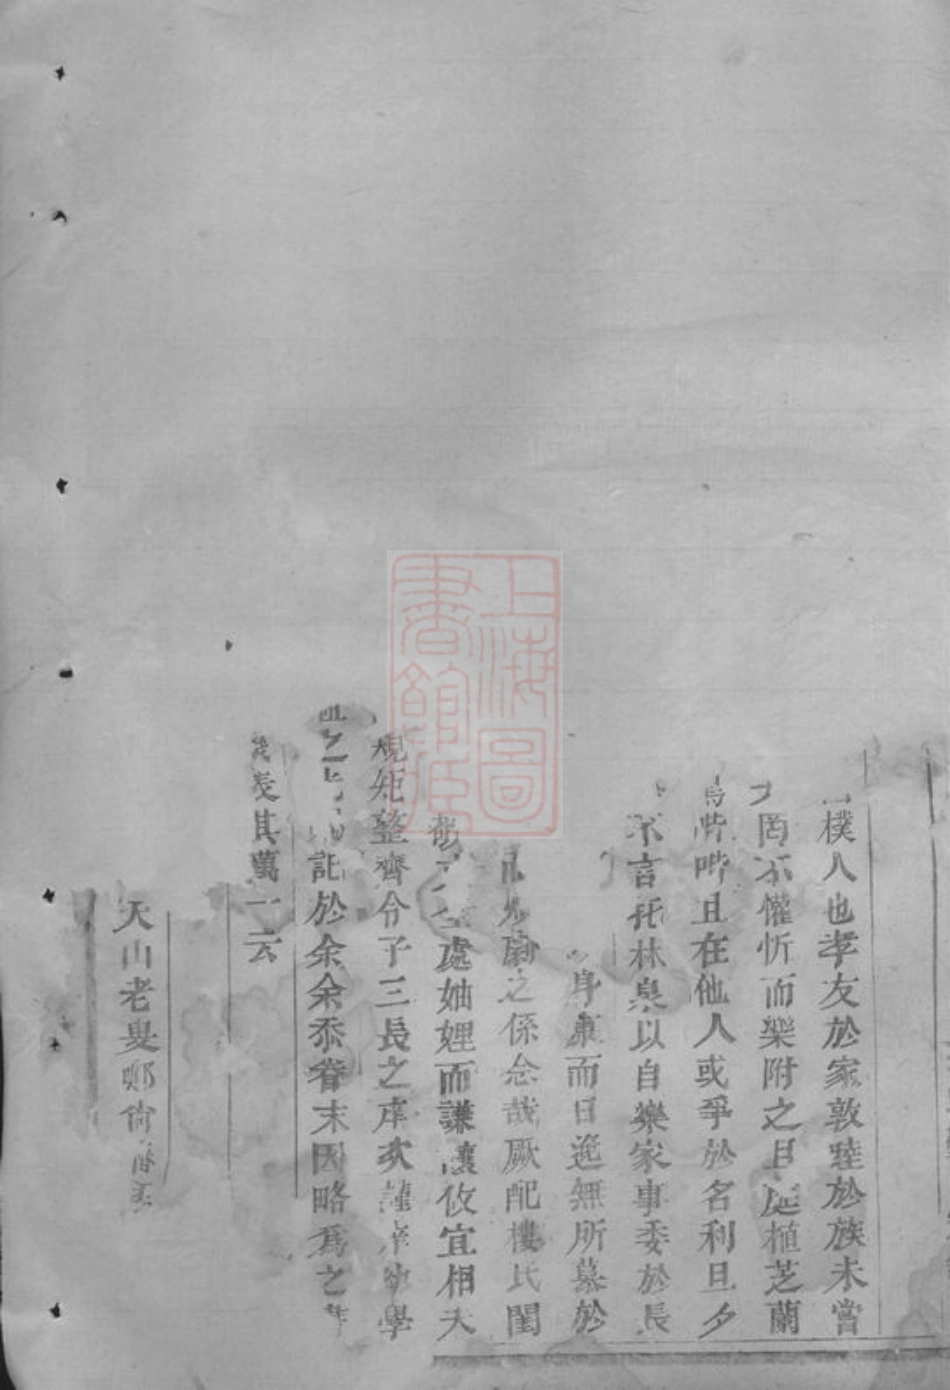 樸人也孝友於家敦睦於族未嘗
罔不懽忻而樂附之且庭植芝蘭
嘗且在他人或爭於名利旦夕
不言托林泉以自樂家事委於長
身康而日逸無所慕於
之係念哉厥配樓氏閨
處妯娌而謙讓攸宜相夫
規矩整齊令子三長之庠次謹幼學
託於余余忝眷末因略為之
表其萬一云
天山老叟鄭尚
上海圖書館藏